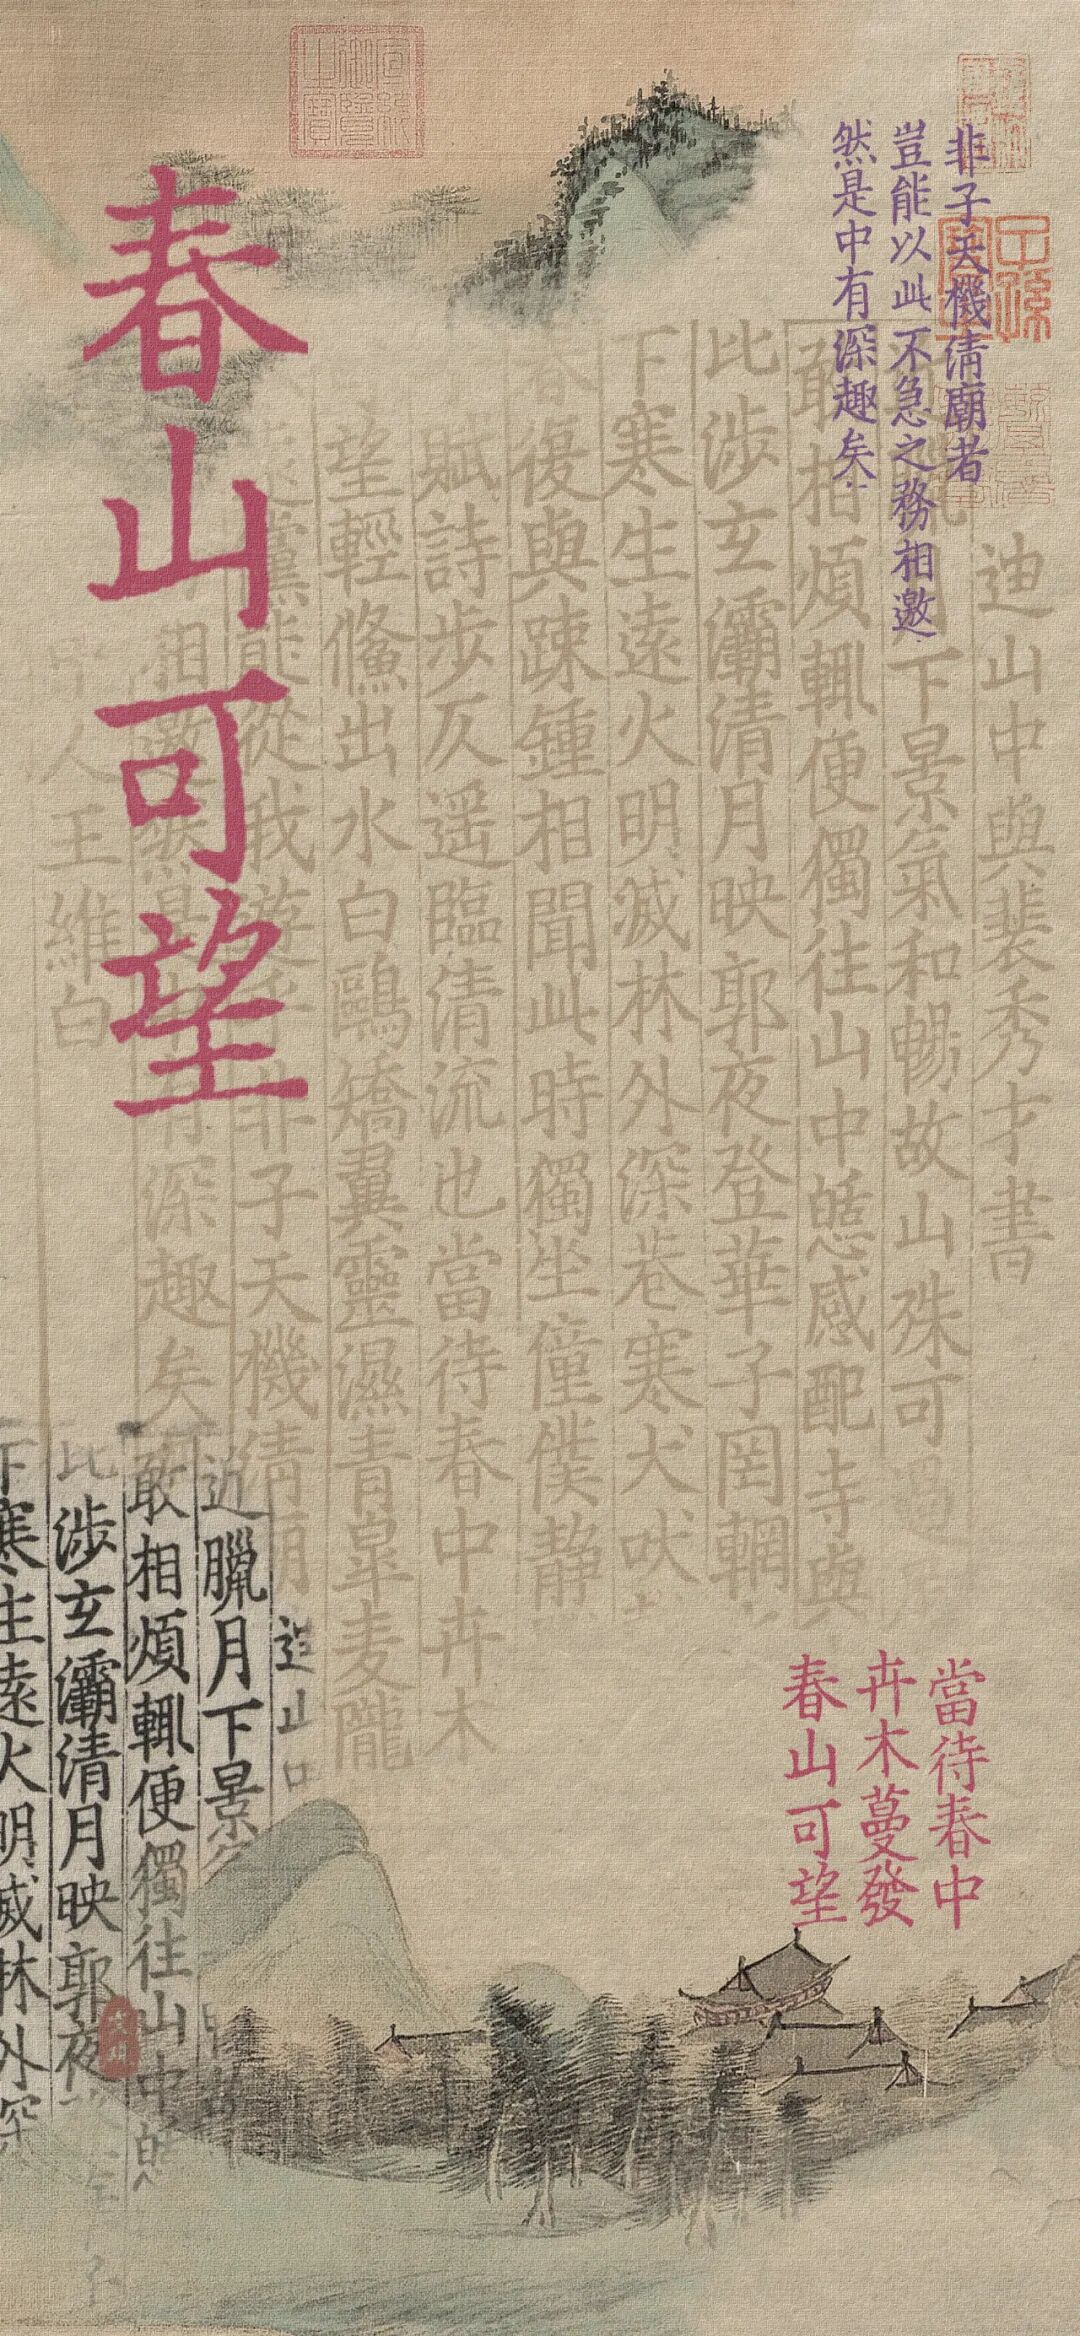 春山可望
非子天機清廟者
豈能以此不急之務相邀
然是中有深趣矣
迪山中與裴秀才書
下景氣和暢故山殊可
敢相煩輒便獨往山中憩感配寺與
比涉玄灞清月映郭夜登華子岡輞
下寒生遠火明滅林外深巷寒犬吠
復與疎鍾相聞此時獨坐僮僕靜
賦詩步仄遥臨清流也當待春中卉木
望輕鯈出水白鷗矯翼靈濕青皐麦隴
從我遊 非子天機清廟
相邀然是中有深趣矣
人王維白
當待春中
卉木蔓發
春山可望
山
近臘月下景氣
敢相煩輒便獨往山中憩
比涉玄灞清月映郭夜
下寒生遠火明滅林外深